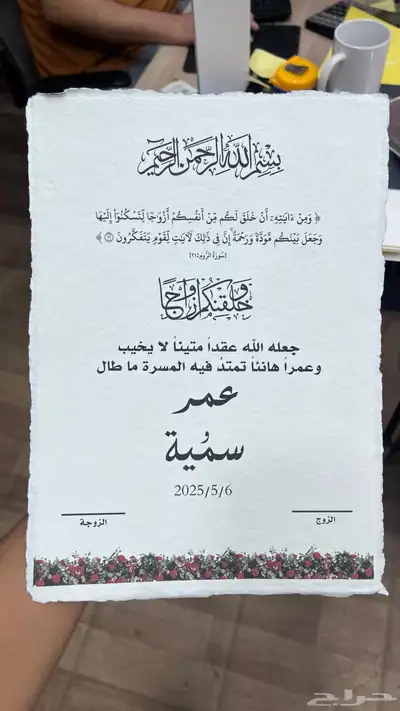 بسم الله الرحمن الرحيم
﴿ وَمِنْ ءَايَٰتِهِۦٓ أَنْ خَلَقَ لَكُم مِّنْ أَنفُسِكُمْ أَزْوَٰجًا لِّتَسْكُنُوٓا۟ إِلَيْهَا
وَجَعَلَ بَيْنَكُم مَّوَدَّةً وَرَحْمَةً ۚ إِنَّ فِى ذَٰلِكَ لَءَايَٰتٍ لِّقَوْمٍ يَتَفَكَّرُونَ ٢١ ﴾
[سورة الروم: ٢١]
وخلقنكم أزواجا
جعله الله عقداً متيناً لا يخيب
وعمراً هانئاً تمتدُ فيه المسرة ما طال
عمر
سمُية
2025/5/6
الزوج
الزوجة
حراج